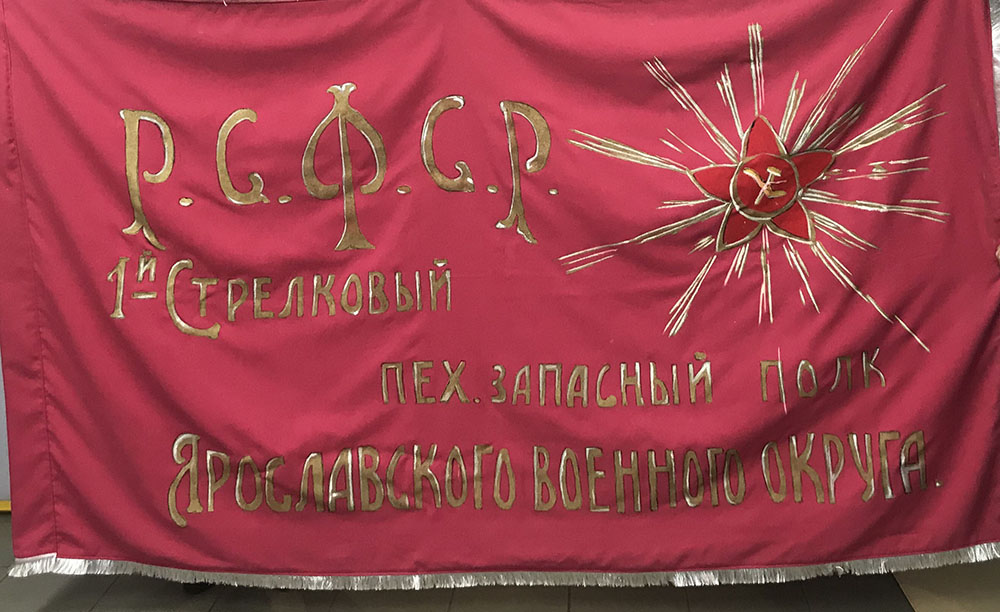 Р.С.Ф.С.Р.
1й Стрелковый
пех. запасный полк
Ярославского военного округа.